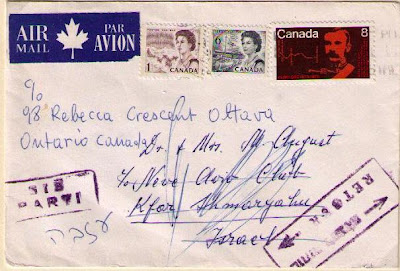 AIR MAIL
PAR AVION
1 CANADA
6 CANADA
Canada 8
c/o
98 Rebecca Crescent Ottawa
Ontario Canada
Dr. & Mrs. M. August
c/o Neve Aviv Club
Kfar Shmaryahu
Israel
PARTI
עזבה
RETOUR